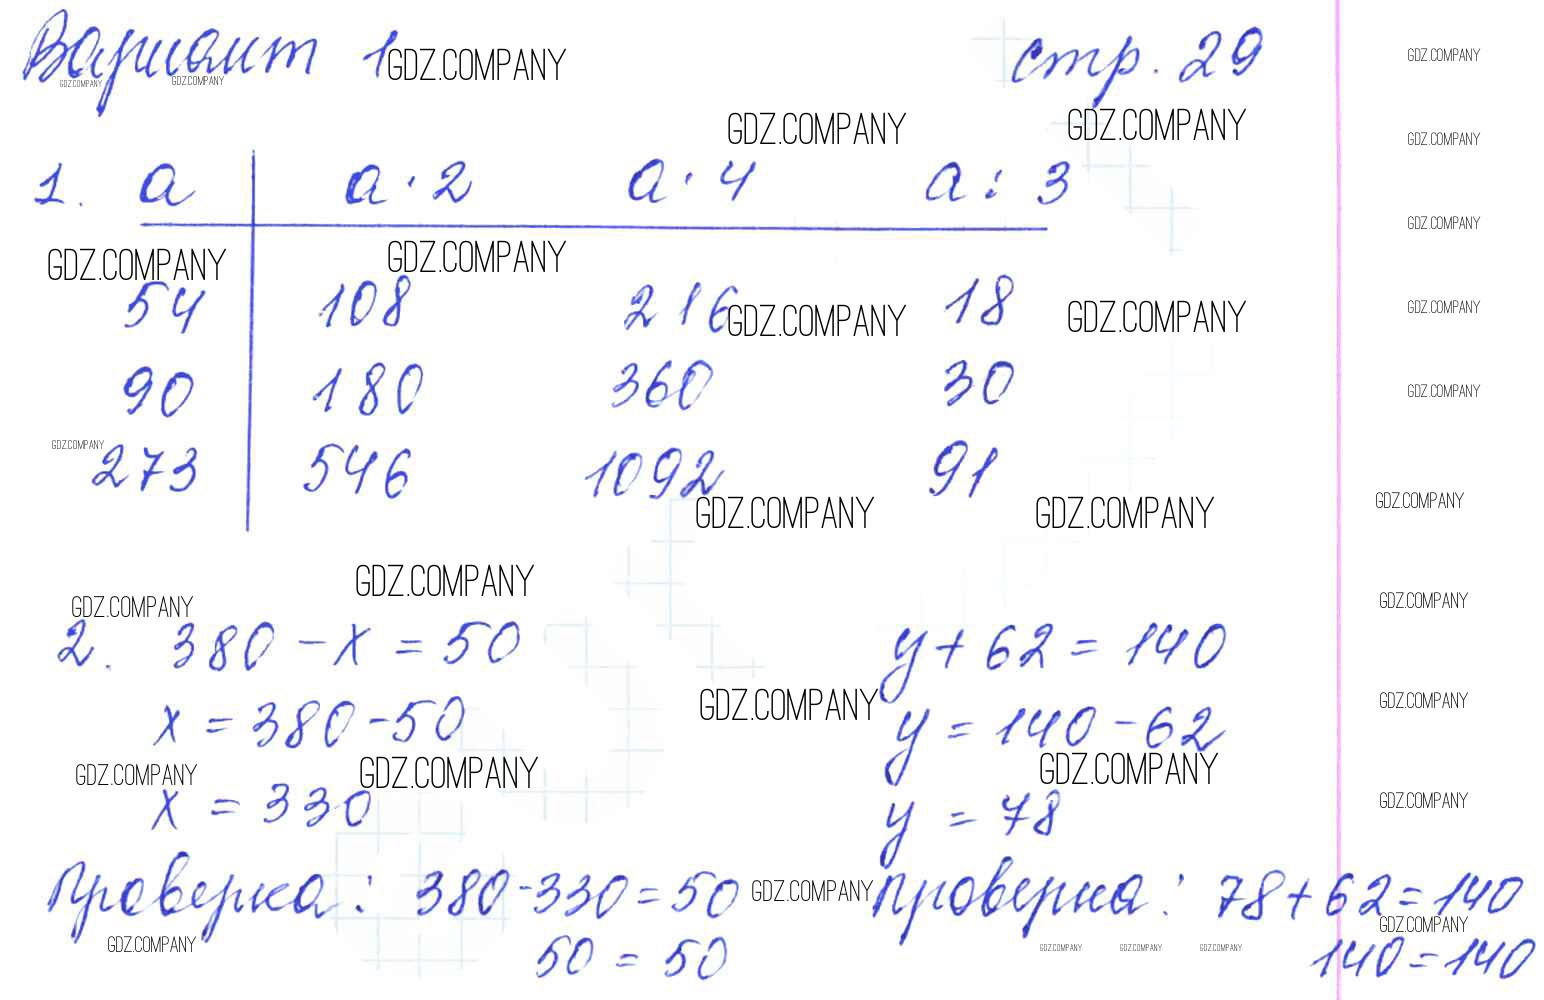 Вариант 1 стр. 29
GDZ.COMPANY GDZ.COMPANY
GDZ.COMPANY GDZ.COMPANY
GDZ.COMPANY GDZ.COMPANY GDZ.COMPANY
1. a a · 2 a · 4 a : 3
GDZ.COMPANY GDZ.COMPANY GDZ.COMPANY
54 108 216 18
GDZ.COMPANY GDZ.COMPANY GDZ.COMPANY
90 180 360 30
GDZ.COMPANY GDZ.COMPANY
273 546 1092 91
GDZ.COMPANY GDZ.COMPANY GDZ.COMPANY
GDZ.COMPANY GDZ.COMPANY GDZ.COMPANY
2. 380 - x = 50 y + 62 = 140
x = 380 - 50 y = 140 - 62
GDZ.COMPANY GDZ.COMPANY
GDZ.COMPANY GDZ.COMPANY GDZ.COMPANY GDZ.COMPANY
x = 330 y = 78
Проверка: 380-330=50 Проверка: 78+62=140
GDZ.COMPANY GDZ.COMPANY
50 = 50 140 = 140
GDZ.COMPANY GDZ.COMPANY GDZ.COMPANY GDZ.COMPANY